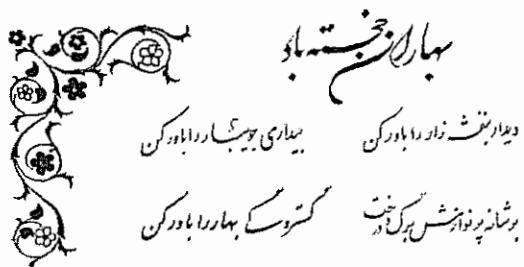 بهاران خجسته باد
دیدار بنفشه زار را باور کن بیداری جویبار را باور کن
بر شانه پر نوازش برگ درخت گستردگی بهار را باور کن